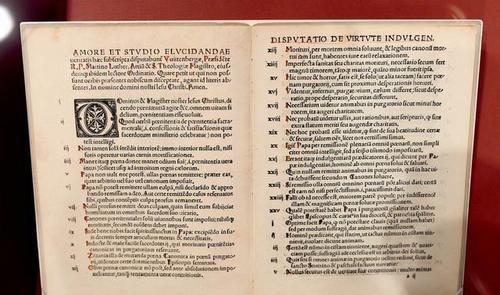 AMORE ET STVDIO ELVCIDANDAE
ueritatis hæc subscripta disputabunť Vuittenbergæ, Præsidéte
R. P. Martino Luther, Artiũ & S. Theologiæ Magistro, eius-
dem ibidem lectore Ordinario. Quare petit ut qui non pos-
sunt uerbis præsentes nobiscum disceptare, agant id literis ab-
sentes. In nomine domini nostri Iesu Christi. Amen.
Ominus & Magister noster Iesus Christus, di-
cendo pœnitentiã agite &c. omnem uitam fi-
delium, pœnitentiam esse uoluit.
ij Quod uerbũ pœnitentia de pœnitentia sacra-
mentali (.i. confessionis & satisfactionis quæ
sacerdotum ministerio celebratur) non po-
test intelligi.
iij Non tamen solã intẽdit interiorẽ: immo interior nulla est, nisi
foris operetur uarias carnis mortificationes.
iiij Manet itaq; pœna donec manet odium sui (.i. pœnitentia uera
intus) scilicet usq; ad introitum regni cælorum.
v Papa nõ uult nec potest, ullas pœnas remittere: præter eas,
quas arbitrio uel suo uel canonum imposuit.
vi Papa nõ potest remittere ullam culpã, nisi declarãdo & appro-
bando remissam a deo. Aut certe remittẽdo casus reseruatos
sibi, quibus contẽptis culpa prorsus remaneret.
vij Nulli prorsus remittit deus culpam, quin simul eum subijciat
humiliatum in omnibus sacerdoti suo uicario.
viij Canones pœnitentiales solũ uiuentibus sunt impositi: nihilq;
morituris, secundũ eosdem debet imponi.
ix Inde bene nobis facit spiritussanctus in Papa: excipiẽdo in su-
is decretis semper articulum mortis & necessitatis.
x Indocte & male faciũt sacerdotes ij, qui morituris pœnitẽtias
canonicas in purgatorium reseruant.
xi Zizania illa de mutanda pœna Canonica in pœnã purgato-
rij, uidentur certe dormientibus Episcopis seminata.
xij Olim pœnæ canonicæ nõ post, sed ante absolutionem impo-
nebantur, tanq̃ tentamenta ueræ contritionis.
DISPVTATIO DE VIRTVTE INDVLGEN.
xiij Morituri, per mortem omnia soluunt, & legibus canonũ mor-
tui iam sunt, habentes iure earum relaxationem.
xiiij Imperfecta sanitas seu charitas morituri, necessario secum fert
magnũ timorem, tãtoq; maiorẽ, quãto minor fuerit ipsa.
xv Hic timor & horror, satis est, se solo (ut alia taceam) facere pœ-
nam purgatorij, cum sit proximus desperationis horrori.
xvi Videntur, infernus, purgatorium, cælum differre: sicut despe-
ratio, prope desperatio, securitas differunt.
xvij Necessarium uidetur animabus in purgatorio sicut minui hor-
rorem, ita augeri charitatem.
xviij Nec probatum uidetur ullis, aut rationibus, aut scripturis, q̃ sint
extra statum meriti seu augendæ charitatis.
xix Nec hoc probatũ esse uidetur, q̃ sint de sua beatitudine certæ
& securæ, saltem oẽs, licet nos certissimi simus.
xx Igitur Papa per remissionẽ plenariã omniũ pœnarũ, non simpli
citer omniũ intelligit, sed a seipso tantummodo impositarũ.
xxi Errant itaq; indulgentiarũ prædicatores ij, qui dicunt per Pa-
pæ indulgentias, hominẽ ab omni pœna solui & saluari.
xxij Quin nullam remittit animabus in purgatorio, quã in hac ui-
ta debuissent secundum Canones soluere.
xxiij Si remissio ulla omniũ omnino pœnarũ potest alicui dari, certũ
est eam non nisi perfectissimis .i. paucissimis dari.
xxiiij Falli ob id necesse est, maiorem partem populi: per indifferentẽ
illam & magnificam pœnæ solutæ promissionem.
xxv Qualẽ potestatẽ habet Papa in purgatoriũ generaliter, talẽ ha-
bet quilibet Episcopus & curat9 in sua diœcesi, & parochia specialiter.
i Optime facit Papa, q̃ nõ potestate clauis (quã nullam habet)
sed per modum suffragij, dat animabus remissionem.
ij Hominẽ prædicant, qui statim, ut iactus nummus in cistam tin-
nierit, euolare dicunt animam.
iij Certũ est nummo in cistam tinniente, augeri questum & auari-
ciam posse: suffragiũ aũt ecclesiæ est in arbitrio dei solius.
iiij Quis scit si omnes animæ in purgatorio uelint redimi, sicut de
sancto Seuerino & paschali factum narratur.
v Nullus securus est de ueritate suæ contritionis: multo minus
a ij